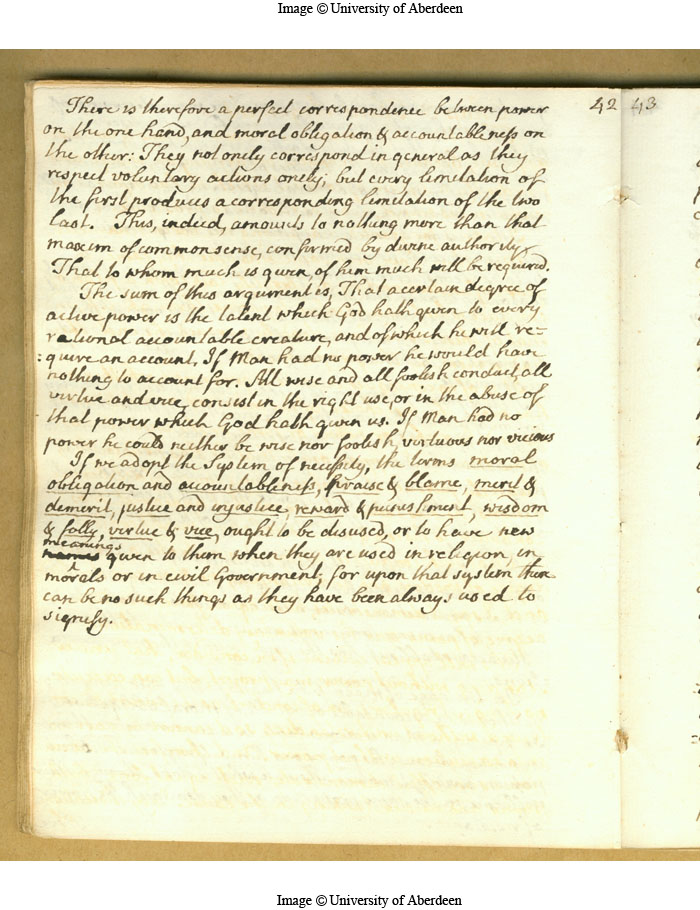 Image © University of Aberdeen
42 43
There is therefore a perfect correspondence between power
on the one hand, and moral obligation & accountableness on
the other: They not onely correspond in general as they
respect voluntary actions onely; but every limitation of
the first produces a corresponding limitation of the two
last. This, indeed, amounts to nothing more than that
maxim of common sense, confirmed by divine authority,
That to whom much is given, of him much will be required.
The sum of this argument is, That a certain degree of
active power is the talent which God hath given to every
rational accountable creature, and of which he will re=
:quire an account. If Man had no power he would have
nothing to account for. All wise and all foolish conduct, all
virtue and vice, consist in the right use, or in the abuse of
that power which God hath given us. If Man had no
power he could neither be wise nor foolish, virtuous nor vicious
If we adopt the System of necessity, the terms moral
obligation and accountableness, praise & blame, merit &
demerit, justice and injustice reward & punishment, wisdom
& folly, virtue & vice, ought to be disused, or to have new
meanings
names given to them when they are used in religion, in
morals or in civil Government; for upon that system there
can be no such things as they have been always used to
signify.
Image © University of Aberdeen